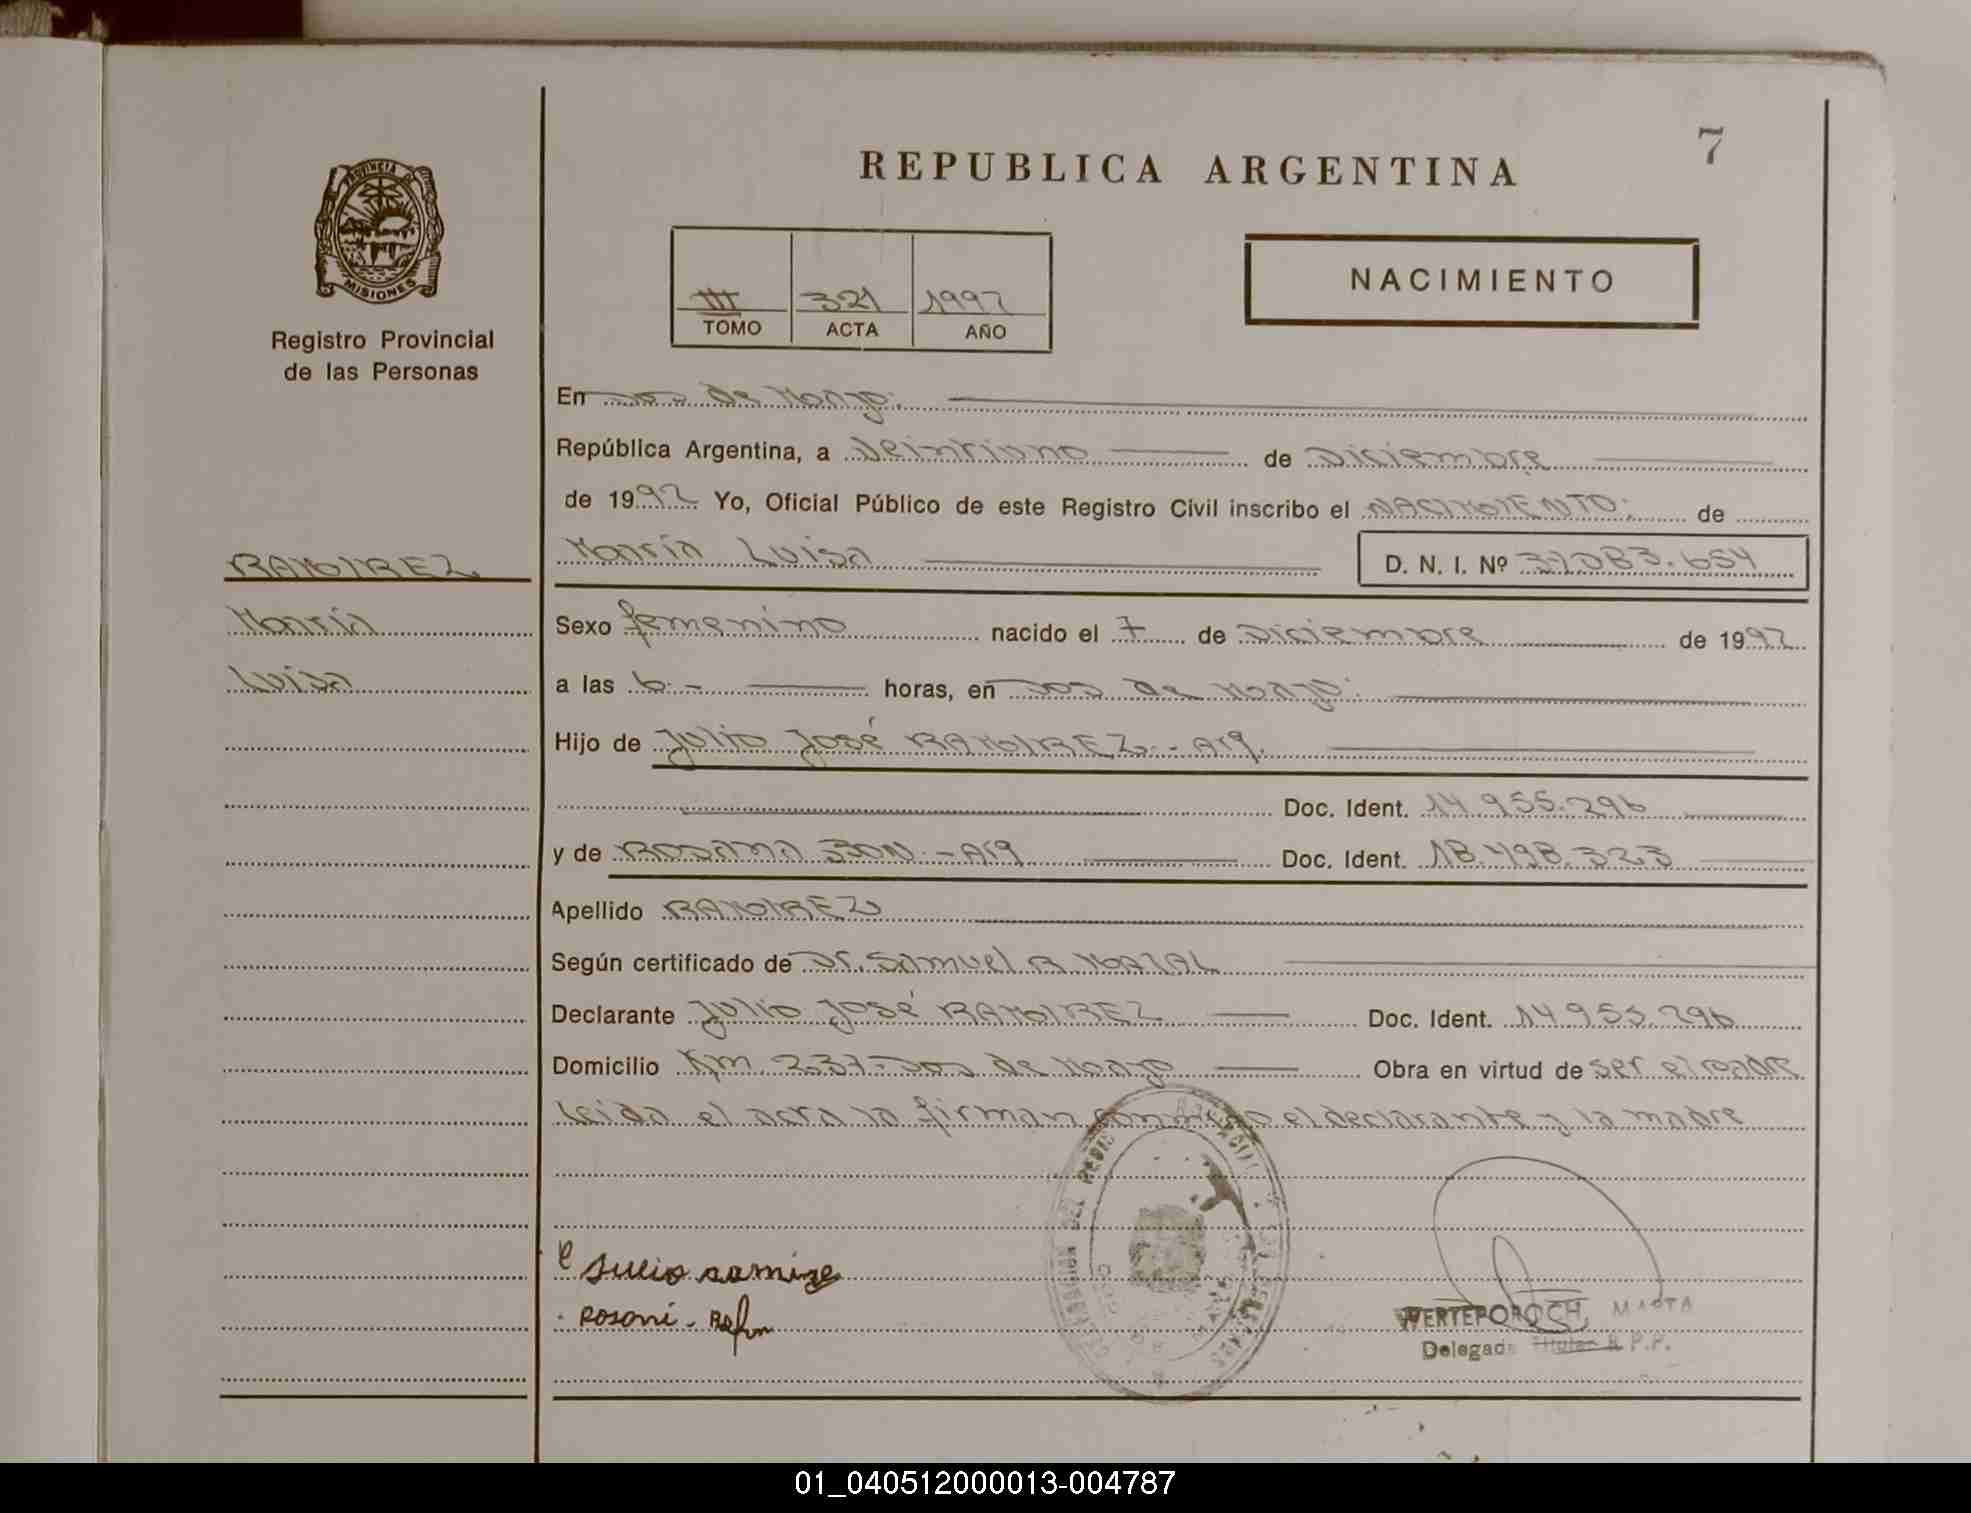 7
REPUBLICA ARGENTINA
PROVINCIA DE
MISIONES
Registro Provincial
de las Personas
III 321 1992
TOMO ACTA AÑO
NACIMIENTO
En Dos de Mayo.
República Argentina, a Veintiuno de Diciembre
de 1992 Yo, Oficial Público de este Registro Civil inscribo el NACIMIENTO: de
RAMIREZ
María Luisa D. N. I. Nº 37.083.654
María
Sexo femenino nacido el 7 de Diciembre de 1992
Luisa
a las 6.- horas, en Dos de Mayo.
Hijo de Julio José RAMIREZ.- Arg.
Doc. Ident. 14.955.296
y de ROSANA BON.- Arg Doc. Ident. 18.498.323
Apellido RAMIREZ
Según certificado de Dr. Samuel R.
Declarante Julio José RAMIREZ Doc. Ident. 14.955.296
Domicilio Km. 237-Dos de Mayo Obra en virtud de ser el padre
Leida el acta la firman conmigo el declarante y la madre
WERTEPOROCH, MARTA
Delegada Titular R.P.P.
01_040512000013-004787